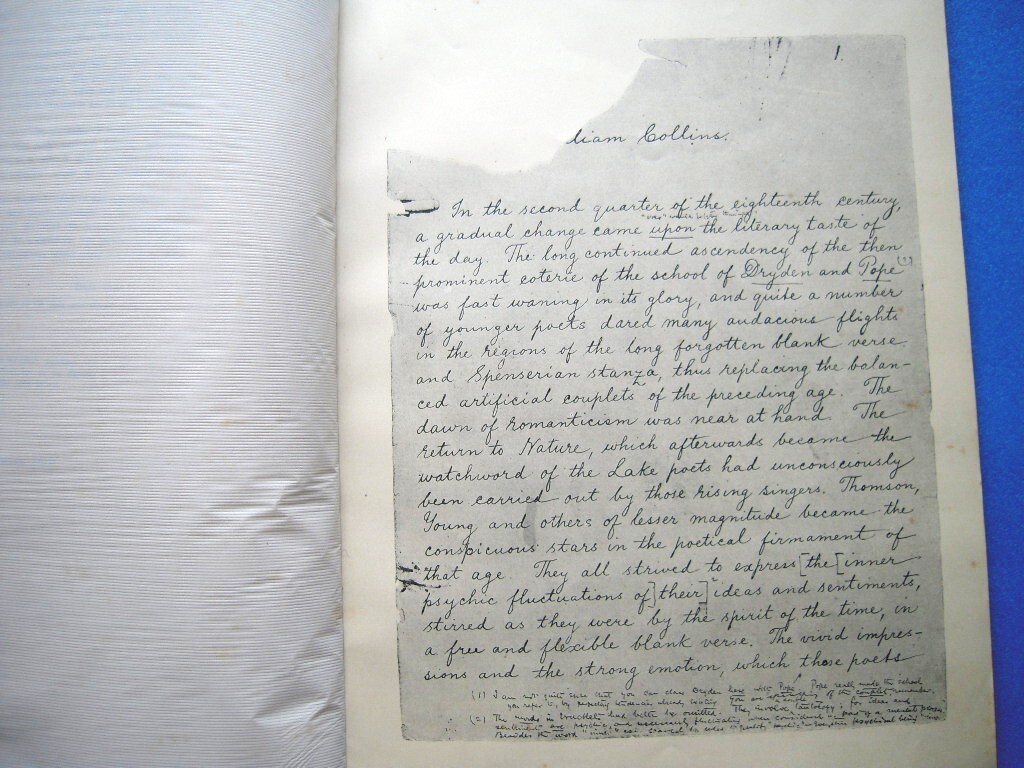 1.
liam Collins.
In the second quarter of the eighteenth century,
a gradual change came upon the literary taste of
the day. The long continued ascendency of the then
prominent coterie of the school of Dryden and Pope (1)
was fast waning in its glory, and quite a number
of younger poets dared many audacious flights
in the regions of the long forgotten blank verse
and Spenserian stanza, thus replacing the balan-
ced artificial couplets of the preceding age. The
dawn of romanticism was near at hand. The
return to Nature, which afterwards became the
watchword of the Lake poets had unconsciously
been carried out by those rising singers. Thomson,
Young and others of lesser magnitude became the
conspicuous stars in the poetical firmament of
that age. They all strived to express [the [inner
psychic fluctuations of] their] ideas and sentiments,
stirred as they were by the spirit of the time, in
a free and flexible blank verse. The vivid impres-
sions and the strong emotion, which these poets
(1) I am not quite sure that you can class Dryden here with Pope. Pope really made the school
you refer to, by
(2) The words in brackets had better be omitted. The
sentiments are psychic, and necessarily fluctuating when considered as part of a
Besides the word